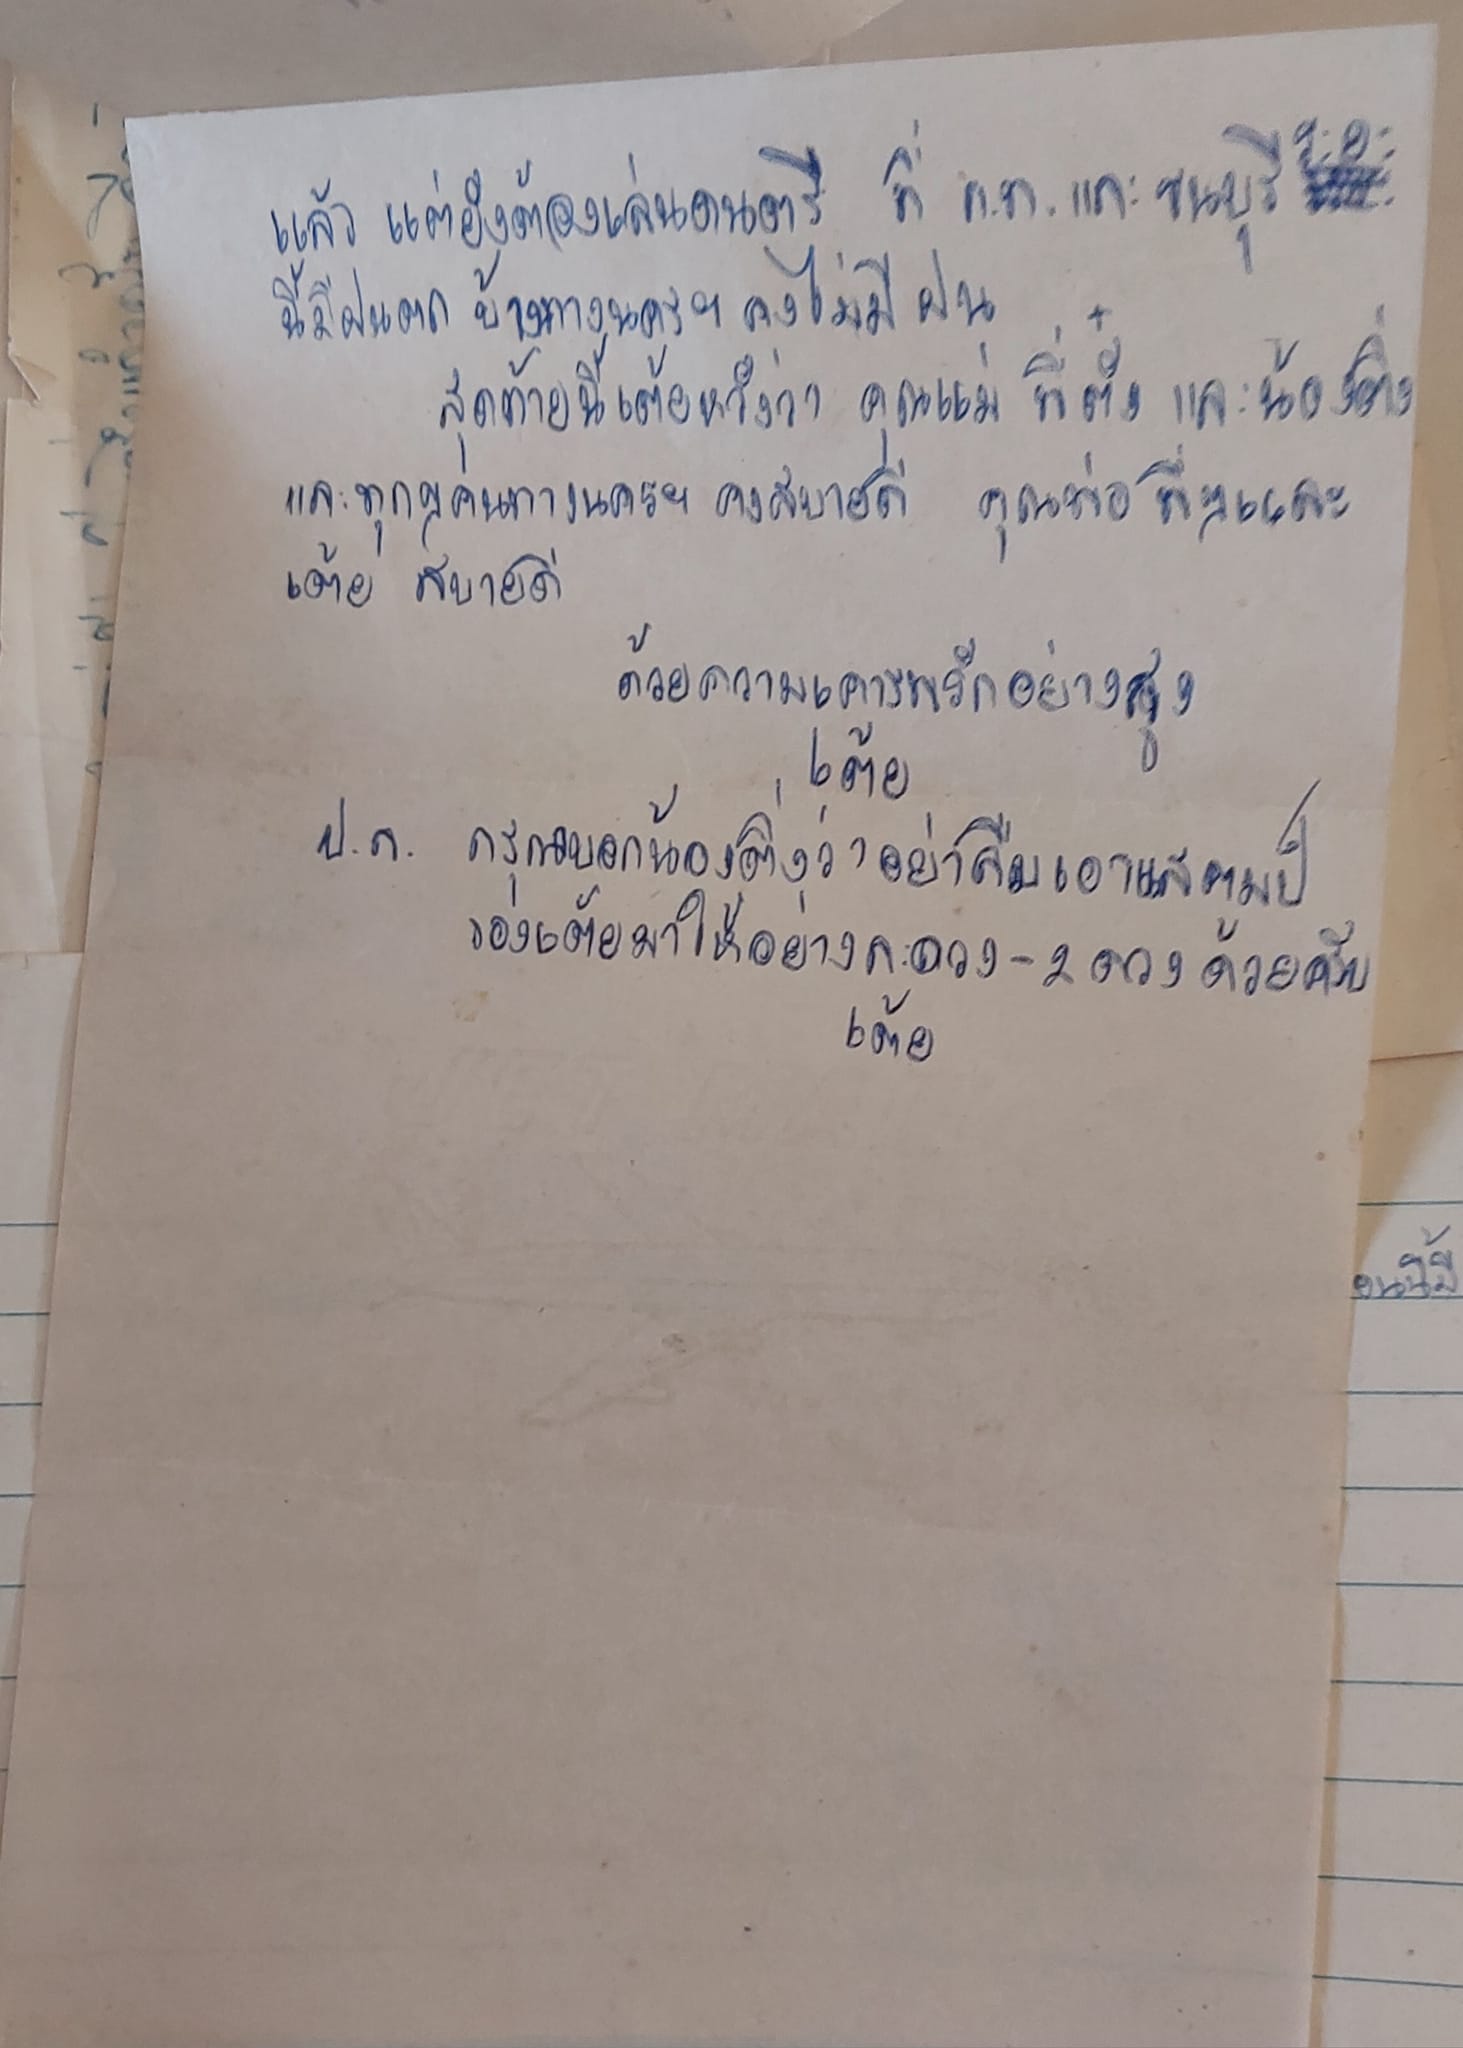 แล้ว แต่ยังต้องเล่นดนตรี ที่ ก.ท. และ ชนบุรี ระยะ
นี้มีฝนตก บ้างทางนครฯ คงไม่มีฝน
สุดท้ายนี้เต้ยหวังว่า คุณแม่ พี่ตั้ง และน้องติ่ง
และทุกๆคนทางนครฯ คงสบายดี คุณพ่อ พี่ๆและ
เต้ย สบายดี
ด้วยความเคารพรักอย่างสูง
เต้ย
ป.ล. กรุณาบอกน้องติ่งว่าอย่าลืมเอาแสตมป์
ของเต้ยมาให้อย่างละดวง-๒ ดวงด้วยครับ
เต้ย